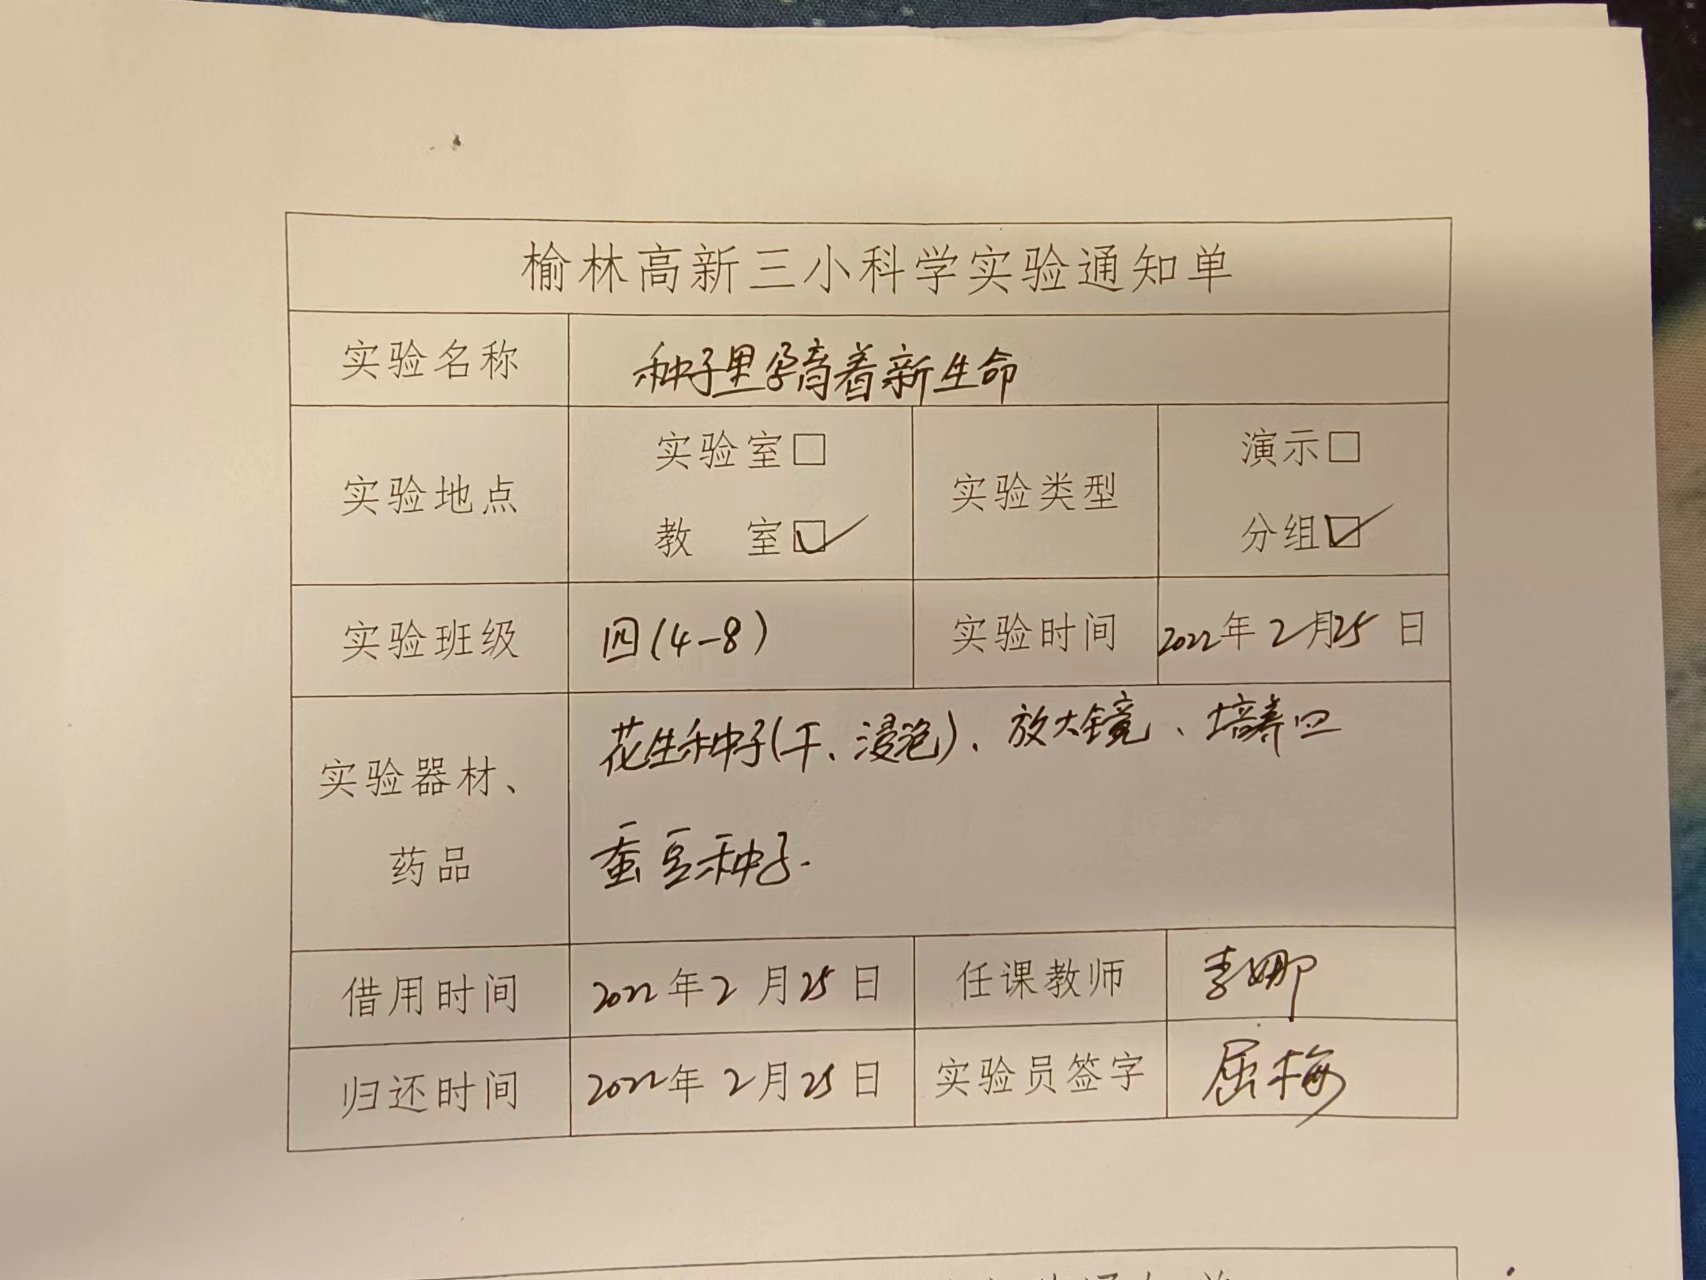 榆林高新三小科学实验通知单
实验名称 种子里孕育着新生命
实验地点 实验室□ 教 室☑ 实验类型 演示□ 分组☑
实验班级 四(4-8) 实验时间 2022年2月25日
实验器材、药品 花生种子(干、浸泡)、放大镜、培养皿
蚕豆种子.
借用时间 2022年2月25日 任课教师 李娜
归还时间 2022年2月25日 实验员签字 屈梅
通知单